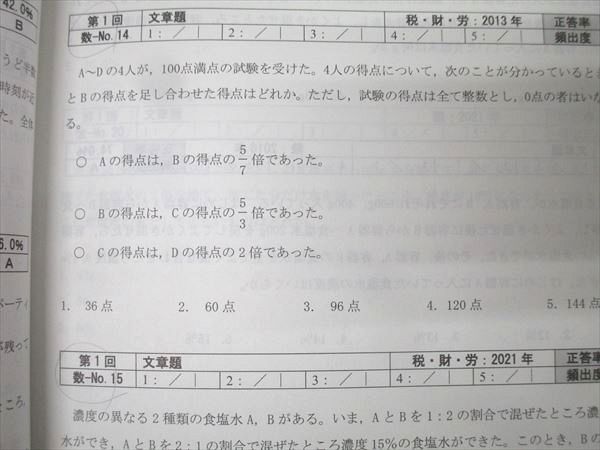 42.0%
B
うど半数
時刻が近
た。全体
5.0%
A
パーティ
が残って
ところ,
第1回 文章題 税・財・労:2013年 正答率
数-No.14 1: ／ 2: ／ 3: ／ 4: ／ 5: ／ 頻出度
A～Dの4人が,100点満点の試験を受けた。4人の得点について,次のことが分かっているとき
とBの得点を足し合わせた得点はどれか。ただし,試験の得点は全て整数とし,0点の者はいな
る。
○ Aの得点は,Bの得点の5/7倍であった。
○ Bの得点は,Cの得点の5/3倍であった。
○ Cの得点は,Dの得点の2倍であった。
1. 36点 2. 60点 3. 96点 4. 120点 5. 144点
第1回 文章題 税・財・労:2021年 正答率
数-No.15 1: ／ 2: ／ 3: ／ 4: ／ 5: ／ 頻出度
濃度の異なる2種類の食塩水A,Bがある。いま,AとBを1:2の割合で混ぜたところ濃
水ができ,AとBを2:1の割合で混ぜたところ濃度15%の食塩水ができた。このとき,Bの